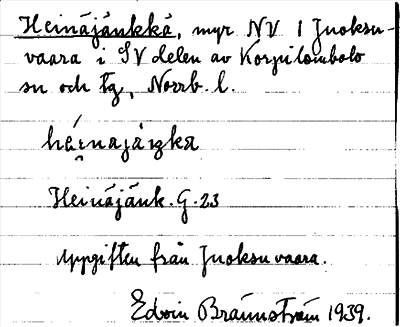 Heinäjänkkä, myr NV l Juoksu-
vaara i SV delen av Korpilombolo
sn och tg, Norrb. l.
Heinäjänk. G. 23
uppgiften från Juoksuvaara.
Edvin Brännström 1939.